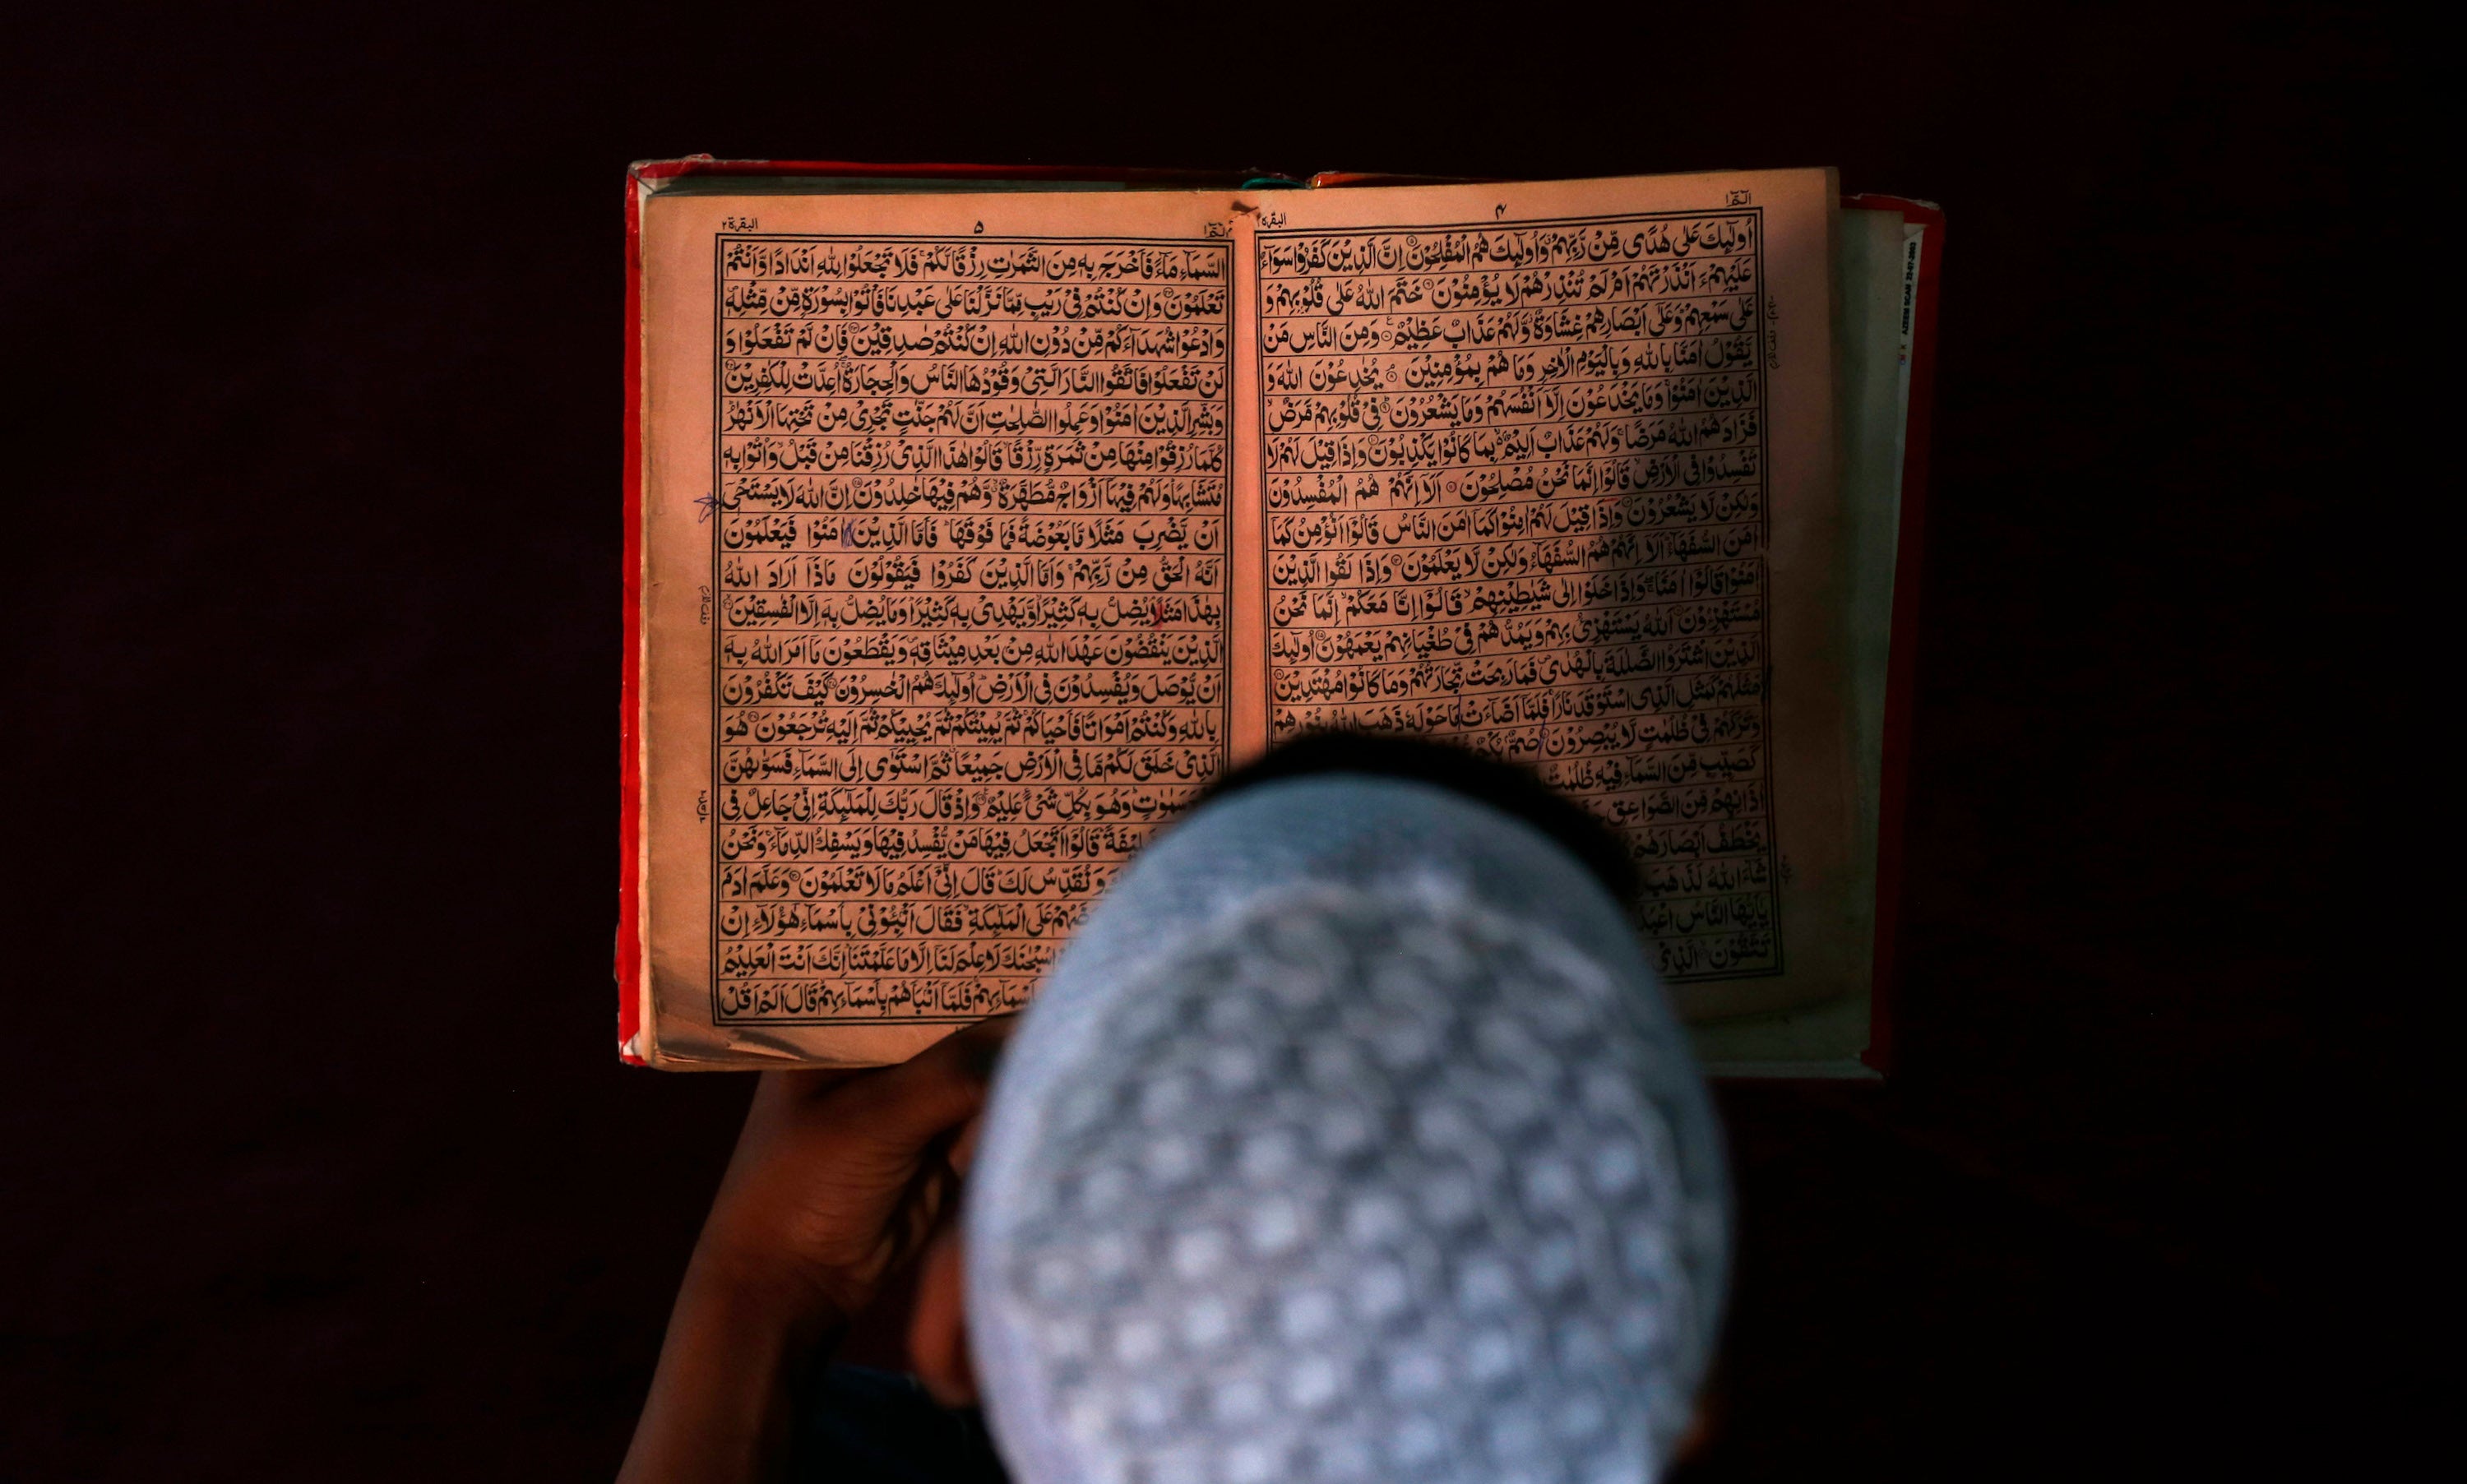 الٓمّٓ ١ ۴ البقرة ٢
اُولٰٓئِكَ عَلٰى هُدًى مِّنْ رَّبِّهِمْ وَاُولٰٓئِكَ هُمُ الْمُفْلِحُوْنَ اِنَّ الَّذِيْنَ كَفَرُوْا سَوَآءٌ
عَلَيْهِمْ ءَاَنْذَرْتَهُمْ اَمْ لَمْ تُنْذِرْهُمْ لَا يُؤْمِنُوْنَ خَتَمَ اللّٰهُ عَلٰى قُلُوْبِهِمْ وَ
عَلٰى سَمْعِهِمْ وَعَلٰٓى اَبْصَارِهِمْ غِشَاوَةٌ وَّلَهُمْ عَذَابٌ عَظِيْمٌ وَمِنَ النَّاسِ مَنْ
يَّقُوْلُ اٰمَنَّا بِاللّٰهِ وَبِالْيَوْمِ الْاٰخِرِ وَمَا هُمْ بِمُؤْمِنِيْنَ يُخٰدِعُوْنَ اللّٰهَ وَ
الَّذِيْنَ اٰمَنُوْا وَمَا يَخْدَعُوْنَ اِلَّآ اَنْفُسَهُمْ وَمَا يَشْعُرُوْنَ فِيْ قُلُوْبِهِمْ مَّرَضٌ
فَزَادَهُمُ اللّٰهُ مَرَضًا وَلَهُمْ عَذَابٌ اَلِيْمٌ بِمَا كَانُوْا يَكْذِبُوْنَ وَاِذَا قِيْلَ لَهُمْ لَا
تُفْسِدُوْا فِى الْاَرْضِ قَالُوْٓا اِنَّمَا نَحْنُ مُصْلِحُوْنَ اَلَآ اِنَّهُمْ هُمُ الْمُفْسِدُوْنَ
وَلٰكِنْ لَّا يَشْعُرُوْنَ وَاِذَا قِيْلَ لَهُمْ اٰمِنُوْا كَمَآ اٰمَنَ النَّاسُ قَالُوْٓا اَنُؤْمِنُ كَمَآ
اٰمَنَ السُّفَهَآءُ اَلَآ اِنَّهُمْ هُمُ السُّفَهَآءُ وَلٰكِنْ لَّا يَعْلَمُوْنَ وَاِذَا لَقُوا الَّذِيْنَ
اٰمَنُوْا قَالُوْٓا اٰمَنَّا وَاِذَا خَلَوْا اِلٰى شَيٰطِيْنِهِمْ قَالُوْٓا اِنَّا مَعَكُمْ اِنَّمَا نَحْنُ
مُسْتَهْزِءُوْنَ اَللّٰهُ يَسْتَهْزِئُ بِهِمْ وَيَمُدُّهُمْ فِيْ طُغْيَانِهِمْ يَعْمَهُوْنَ اُولٰٓئِكَ
الَّذِيْنَ اشْتَرَوُا الضَّلٰلَةَ بِالْهُدٰى فَمَا رَبِحَتْ تِّجَارَتُهُمْ وَمَا كَانُوْا مُهْتَدِيْنَ
مَثَلُهُمْ كَمَثَلِ الَّذِى اسْتَوْقَدَ نَارًا فَلَمَّآ اَضَآءَتْ مَا حَوْلَهٗ ذَهَبَ اللّٰهُ بِنُوْرِهِمْ
وَتَرَكَهُمْ فِيْ ظُلُمٰتٍ لَّا يُبْصِرُوْنَ صُمٌّۢ بُكْمٌ
كَصَيِّبٍ مِّنَ السَّمَآءِ فِيْهِ ظُلُمٰتٌ
اٰذَانِهِمْ مِّنَ الصَّوَاعِقِ
يَخْطَفُ اَبْصَارَهُمْ
شَآءَ اللّٰهُ لَذَهَبَ
يٰٓاَيُّهَا النَّاسُ
تَتَّقُوْنَ الَّذِيْ
الٓمّٓ ١ ۵ البقرة ٢
السَّمَآءِ مَآءً فَاَخْرَجَ بِهٖ مِنَ الثَّمَرٰتِ رِزْقًا لَّكُمْ فَلَا تَجْعَلُوْا لِلّٰهِ اَنْدَادًا وَّاَنْتُمْ
تَعْلَمُوْنَ وَاِنْ كُنْتُمْ فِيْ رَيْبٍ مِّمَّا نَزَّلْنَا عَلٰى عَبْدِنَا فَاْتُوْا بِسُوْرَةٍ مِّنْ مِّثْلِهٖ
وَادْعُوْا شُهَدَآءَكُمْ مِّنْ دُوْنِ اللّٰهِ اِنْ كُنْتُمْ صٰدِقِيْنَ فَاِنْ لَّمْ تَفْعَلُوْا وَ
لَنْ تَفْعَلُوْا فَاتَّقُوا النَّارَ الَّتِيْ وَقُوْدُهَا النَّاسُ وَالْحِجَارَةُ اُعِدَّتْ لِلْكٰفِرِيْنَ
وَبَشِّرِ الَّذِيْنَ اٰمَنُوْا وَعَمِلُوا الصّٰلِحٰتِ اَنَّ لَهُمْ جَنّٰتٍ تَجْرِيْ مِنْ تَحْتِهَا الْاَنْهٰرُ
كُلَّمَا رُزِقُوْا مِنْهَا مِنْ ثَمَرَةٍ رِّزْقًا قَالُوْا هٰذَا الَّذِيْ رُزِقْنَا مِنْ قَبْلُ وَاُتُوْا بِهٖ
مُتَشَابِهًا وَلَهُمْ فِيْهَآ اَزْوَاجٌ مُّطَهَّرَةٌ وَّهُمْ فِيْهَا خٰلِدُوْنَ اِنَّ اللّٰهَ لَا يَسْتَحْيٖٓ
اَنْ يَّضْرِبَ مَثَلًا مَّا بَعُوْضَةً فَمَا فَوْقَهَا فَاَمَّا الَّذِيْنَ اٰمَنُوْا فَيَعْلَمُوْنَ
اَنَّهُ الْحَقُّ مِنْ رَّبِّهِمْ وَاَمَّا الَّذِيْنَ كَفَرُوْا فَيَقُوْلُوْنَ مَاذَآ اَرَادَ اللّٰهُ
بِهٰذَا مَثَلًا يُضِلُّ بِهٖ كَثِيْرًا وَّيَهْدِيْ بِهٖ كَثِيْرًا وَمَا يُضِلُّ بِهٖٓ اِلَّا الْفٰسِقِيْنَ
الَّذِيْنَ يَنْقُضُوْنَ عَهْدَ اللّٰهِ مِنْۢ بَعْدِ مِيْثَاقِهٖ وَيَقْطَعُوْنَ مَآ اَمَرَ اللّٰهُ بِهٖٓ
اَنْ يُّوْصَلَ وَيُفْسِدُوْنَ فِى الْاَرْضِ اُولٰٓئِكَ هُمُ الْخٰسِرُوْنَ كَيْفَ تَكْفُرُوْنَ
بِاللّٰهِ وَكُنْتُمْ اَمْوَاتًا فَاَحْيَاكُمْ ثُمَّ يُمِيْتُكُمْ ثُمَّ يُحْيِيْكُمْ ثُمَّ اِلَيْهِ تُرْجَعُوْنَ هُوَ
الَّذِيْ خَلَقَ لَكُمْ مَّا فِى الْاَرْضِ جَمِيْعًا ثُمَّ اسْتَوٰٓى اِلَى السَّمَآءِ فَسَوّٰىهُنَّ
سَمٰوٰتٍ وَهُوَ بِكُلِّ شَيْءٍ عَلِيْمٌ وَاِذْ قَالَ رَبُّكَ لِلْمَلٰٓئِكَةِ اِنِّيْ جَاعِلٌ فِى
قَالُوْٓا اَتَجْعَلُ فِيْهَا مَنْ يُّفْسِدُ فِيْهَا وَيَسْفِكُ الدِّمَآءَ وَنَحْنُ
وَنُقَدِّسُ لَكَ قَالَ اِنِّيْٓ اَعْلَمُ مَا لَا تَعْلَمُوْنَ وَعَلَّمَ اٰدَمَ
عَلَى الْمَلٰٓئِكَةِ فَقَالَ اَنْۢبِـُٔوْنِيْ بِاَسْمَآءِ هٰٓؤُلَآءِ اِنْ
سُبْحٰنَكَ لَا عِلْمَ لَنَآ اِلَّا مَا عَلَّمْتَنَا اِنَّكَ اَنْتَ الْعَلِيْمُ
فَلَمَّآ اَنْۢبَاَهُمْ بِاَسْمَآئِهِمْ قَالَ اَلَمْ اَقُلْ